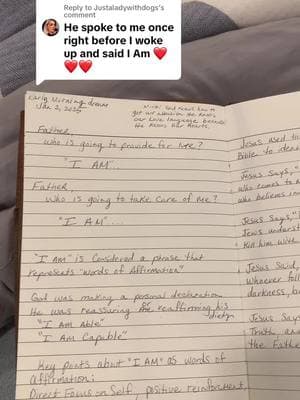 Reply to Justaladywithdogs's
comment
He spoke to me once
right before I woke
up and said I Am ❤️
❤️❤️
Early Morning dream
Jan 2, 2025
God knows how to
get our attention He knows
our Love language because
He knows our hearts.
Father,
Who is going to provide for me?
"I AM"...
Father,
Who is going to take care of me?
"I AM"...
"I AM" is Considered a phrase that
represents "words of Affirmation"
God was making a personal declaration
He was reassuring me reaffirming his
diety
"I AM Able"
"I AM Capable"
Key points about "I AM" as words of
Affirmation:
Direct Focus on Self, positive reinforcement,
Jesus used t
Bible to
Jesus Says, "
who comes to
who believes in
Jesus Says, "
Jews underst
Kill him with
Jesus Said,
Whoever foll
darkness, bu
Jesus Says
Truth, and
the Father